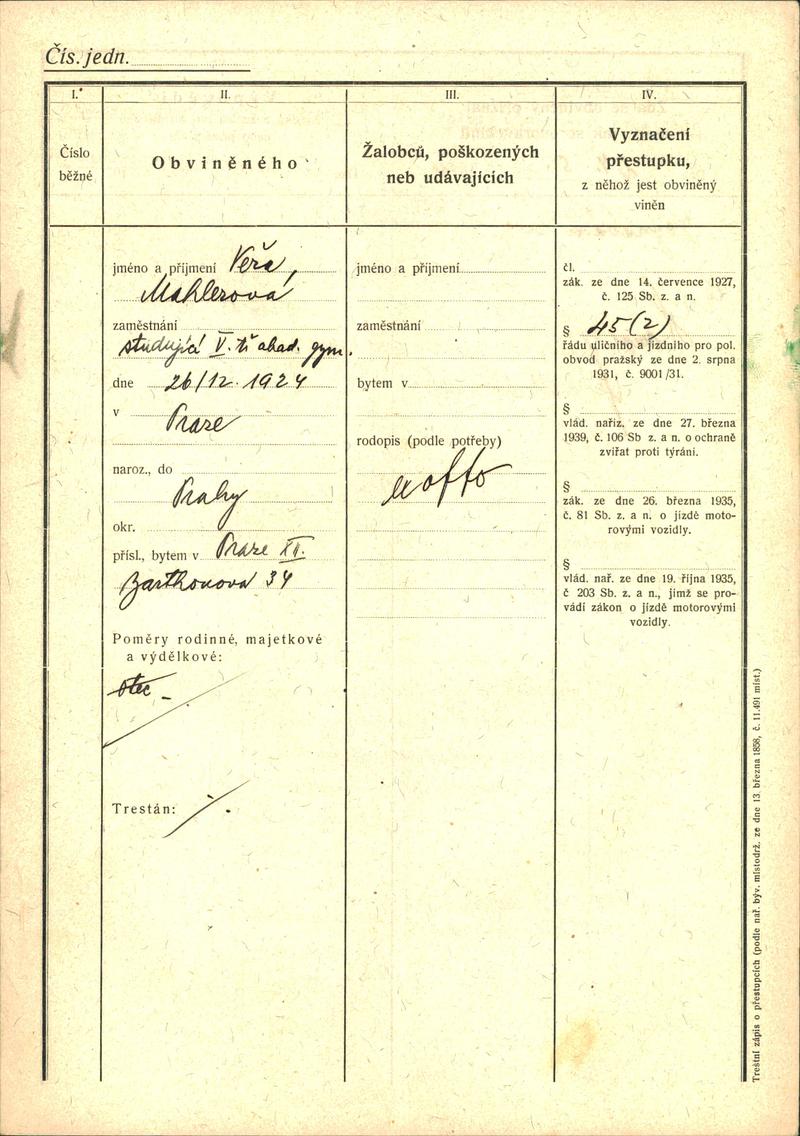 Čís. jedn.
I.
II.
III.
IV.
Číslo
běžné
Obviněného
Žalobců, poškozených
neb udávajících
Vyznačení
přestupku,
z něhož jest obviněný
viněn
jméno a příjmení Věra,
Mahlerová
zaměstnání
studující V. tř. akad. gym.
dne 26/12. 1924
v Praze
naroz., do
Prahy
okr.
přísl., bytem v Praze XII.
34
Poměry rodinné, majetkové
a výdělkové:
otec
Trestán:
jméno a příjmení
zaměstnání
bytem v
rodopis (podle potřeby)
čl.
zák. ze dne 14. července 1927,
č. 125 Sb. z. a n.
§ 45 (2)
řádu uličního a jízdního pro pol.
obvod pražský ze dne 2. srpna
1931, č. 9001/31.
§
vlád. naříz. ze dne 27. března
1939, č. 106 Sb z. a n. o ochraně
zvířat proti týrání.
§
zák. ze dne 26. března 1935,
č. 81 Sb. z. a n. o jízdě moto-
rovými vozidly.
§
vlád. nař. ze dne 19. října 1935,
č 203 Sb. z. a n., jímž se pro-
vádí zákon o jízdě motorovými
vozidly.
Trestní zápis o přestupcích (podle nař. býv. místodrž. ze dne 13. března 1858, č. 11.491 míst.)